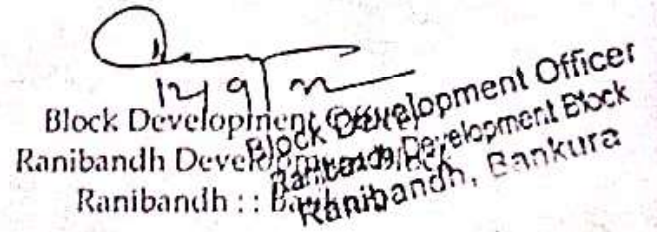 Block Development
Ranibandh Development Block
Ranibandh : : Bankura
Block Development Officer
Ranibandh Development Block
Ranibandh, Bankura